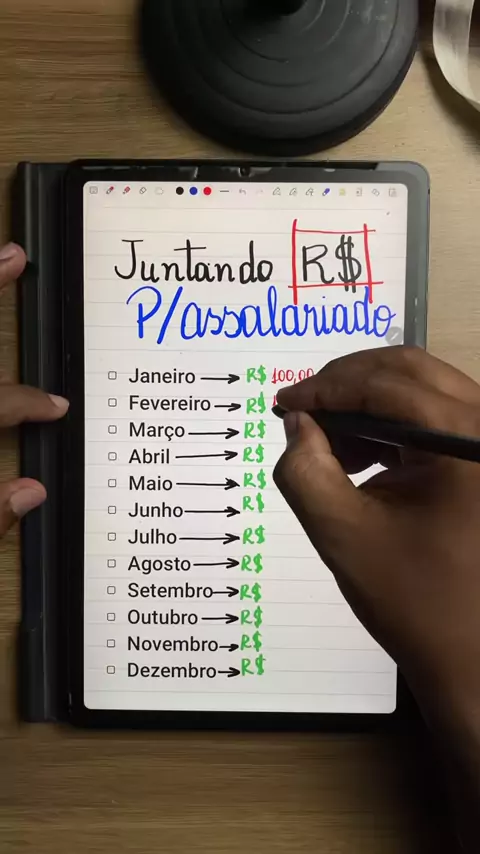 Juntando R$
P/assalariado
Janeiro → R$ 100,00
Fevereiro → R$
Março → R$
Abril → R$
Maio → R$
Junho → R$
Julho → R$
Agosto → R$
Setembro → R$
Outubro → R$
Novembro → R$
Dezembro → R$